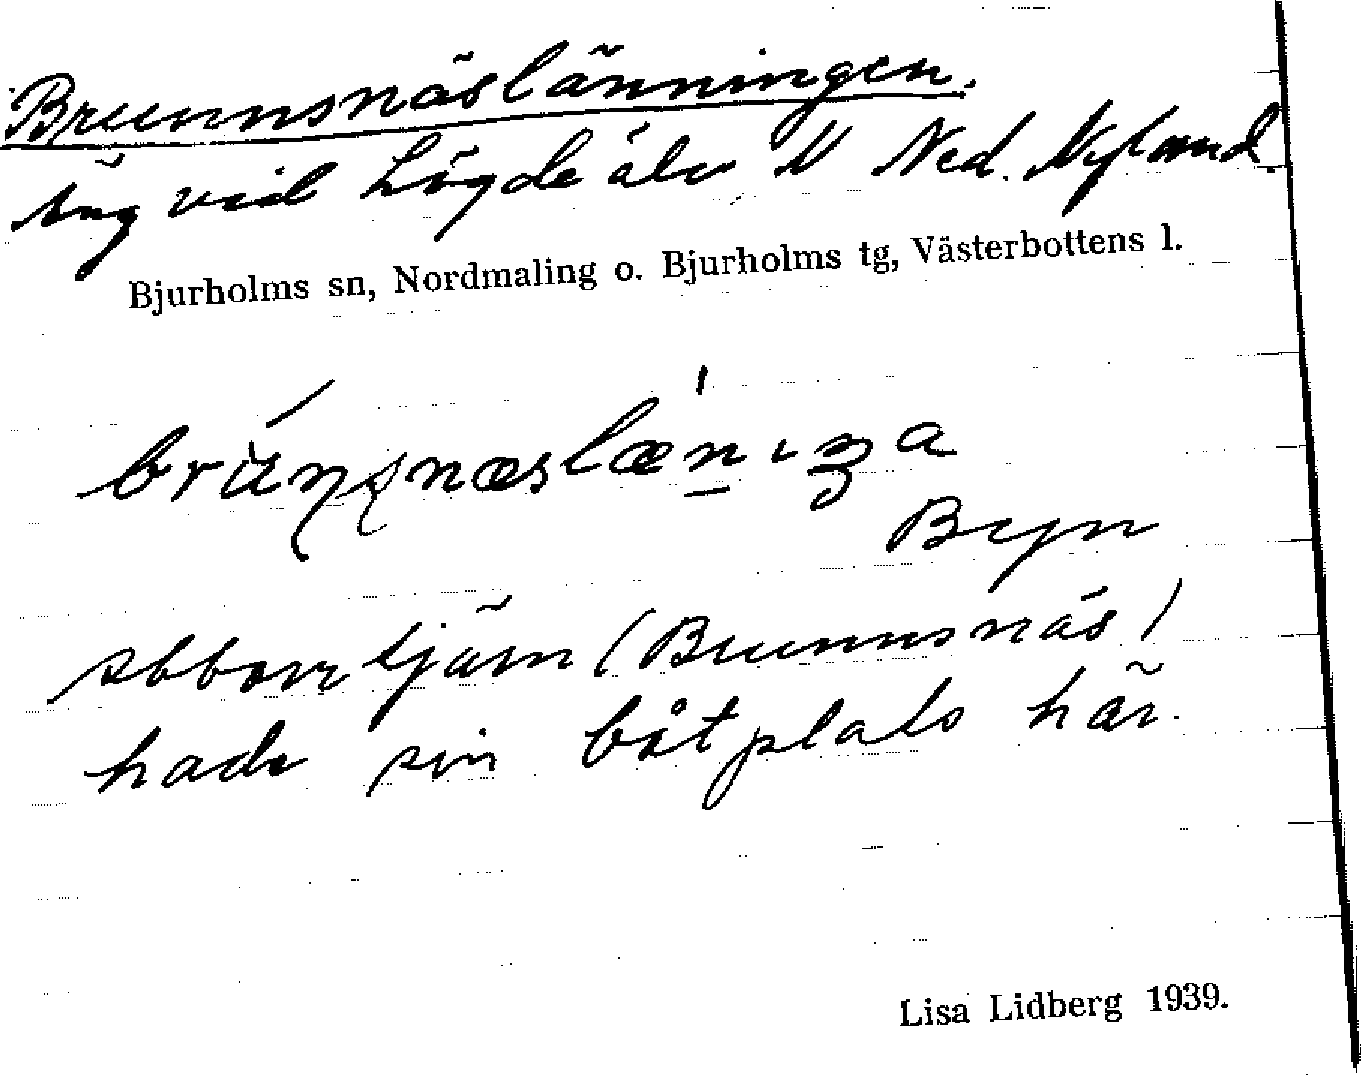 Brunnsnäslänningen.
Äng vid Lögde älv N Ned. Nyland.
Bjurholms sn, Nordmaling o. Bjurholms tg, Västerbottens l.
Byn
Abborrtjärn (Brunnsnäs)
hade sin båtplats här.
Lisa Lidberg 1939.